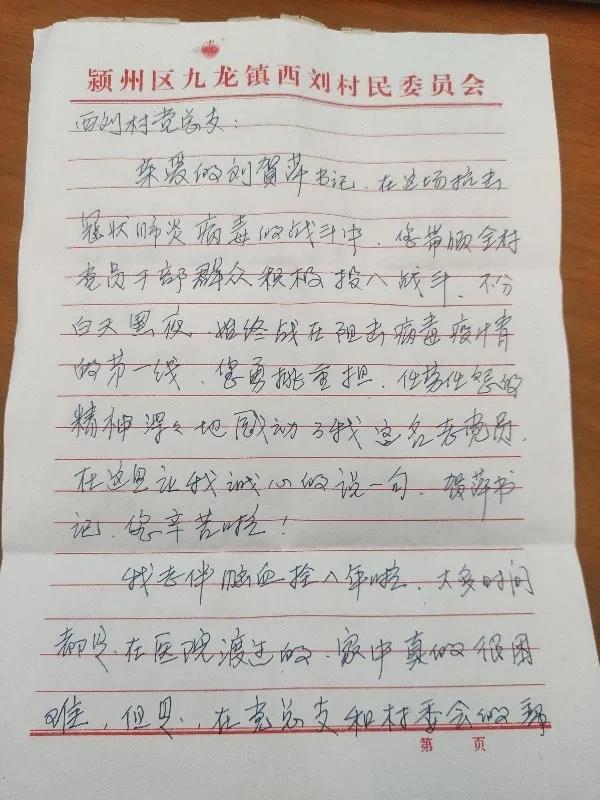 颍州区九龙镇西刘村民委员会
西刘村党总支：
荣聂的刘贺萍书记，在这场抗击
冠状肺炎病毒的战斗中，您带领全村
党员干部群众积极投入战斗，不分
白天黑夜，始终战在阻击病毒疫情
的第一线，您勇挑重担，任劳任怨的
精神深々地感动了我这名老党员，
在这里让我诚心的说一句，贺萍书
记，您辛苦啦！
我老伴脑血拴八年啦，大多时间
都是在医院渡过的，家中真的很困
难，但是，在党总支和村委会的帮
第 页